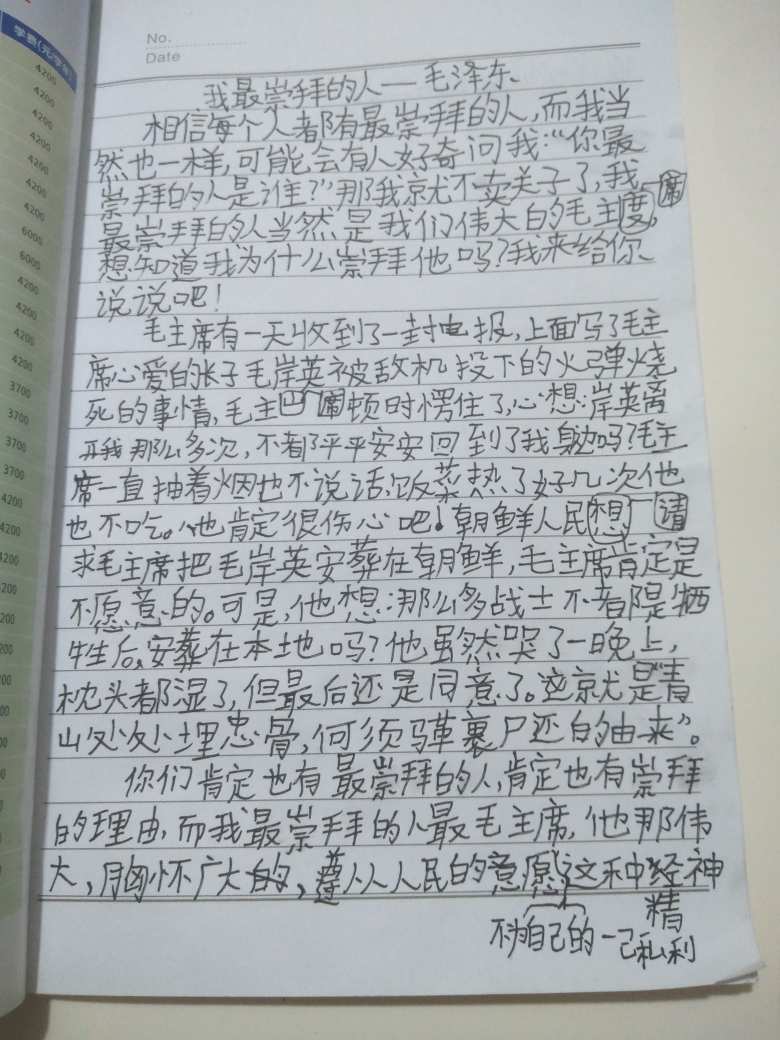 学费(元/学年)
4200
4200
4200
4200
4200
4200
4200
6000
6000
4200
4200
4200
4200
3700
3700
3700
3700
4200
4200
4200
No.
Date
我最崇拜的人——毛泽东
相信每个人都有最崇拜的人,而我当
然也一样,可能会有人好奇问我:“你最
崇拜的人是谁?”那我就不卖关子了,我
最崇拜的人当然是我们伟大的毛主度席,
想知道我为什么崇拜他吗?我来给你
说说吧!
毛主席有一天收到了一封电报,上面写了毛主
席心爱的长子毛岸英被敌机投下的火弹烧
死的事情,毛主席顿时愣住了,心想:岸英离
开我那么多次,不都平平安安回到了我身边吗?毛主
席一直抽着烟也不说话,饭菜热了好几次他
也不吃。他肯定很伤心吧!朝鲜人民想请
求毛主席把毛岸英安葬在朝鲜,毛主席肯定是
不愿意的。可是,他想:那么多战士不都是牺
牲后,安葬在本地吗?他虽然哭了一晚上,
枕头都湿了,但最后还是同意了。这就是“青
山处处埋忠骨,何须马革裹尸还的由来”。
你们肯定也有最崇拜的人,肯定也有崇拜
的理由,而我最崇拜的人最毛主席,他那伟
大,胸怀广大的,遵从人民的意愿这种经神
精
不为自己的一己私利